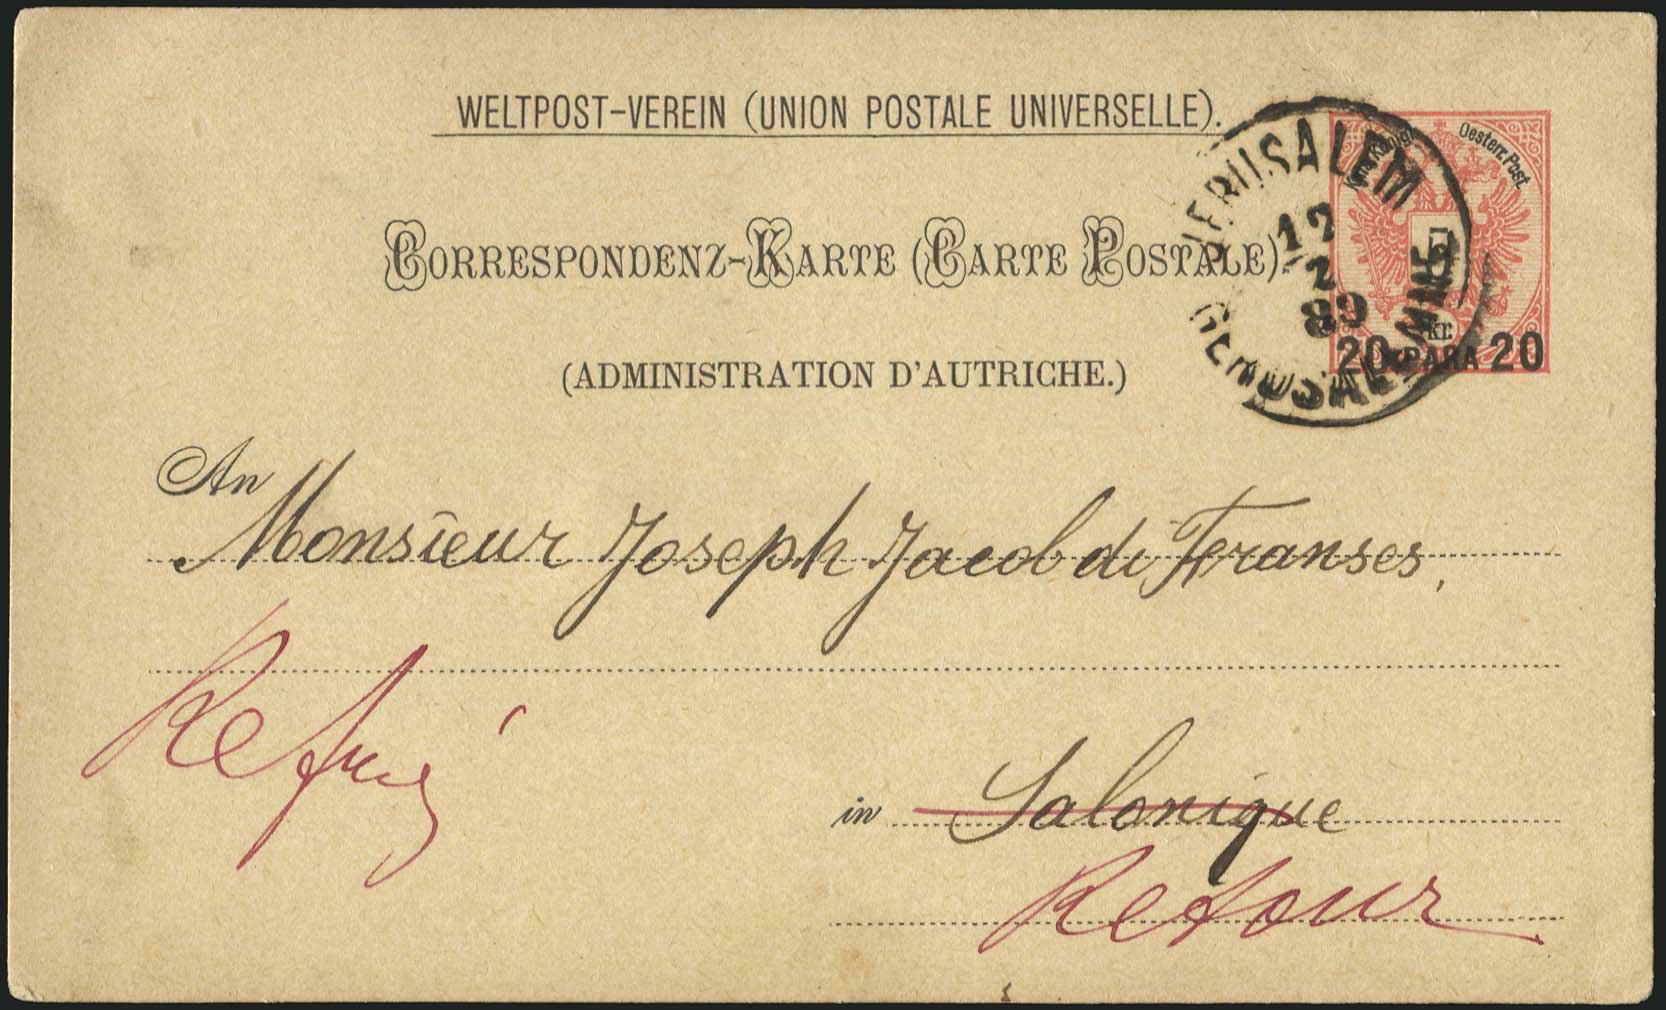 WELTPOST-VEREIN (UNION POSTALE UNIVERSELLE).
Kais. Königl. Oesterr. Post.
JERUSALEM
12
2
89
GERUSALEMME
5
kr.
20 PARA 20
CORRESPONDENZ-KARTE (CARTE POSTALE)
(ADMINISTRATION D'AUTRICHE.)
An
Monsieur Joseph Jacob di Franses,
Refusé
in Salonique
Retour